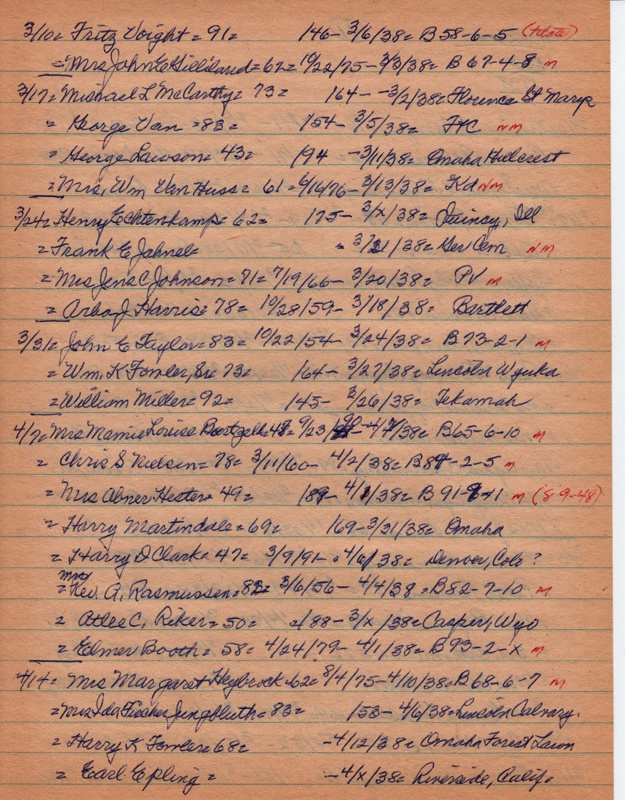 3/10= Fritz Voight = 91= 146- 3/6/38= B58-6-5 (+date)
= Mrs John E Gilliland = 62= 10/22/75- 3/3/38= B 67-4-8 m
3/17= Michael L McCarthy= 73= 164- -3/2/38= Florence St Marys
= George Van = 83= 154- 3/5/38= FtC NM
= George Lawson= 43= 194 -3/11/38= Omaha Hillcrest
= Mrs, Wm Van Huss= 61= 6/14/76- 3/13/38= Kd NM
3/24= Henry Echtenkamp= 62= 175- 3/x/38= Quincy, Ill
= Frank E Jahnel= = 3/21/38= Ger Cem NM
= Mrs Jens C Johnson= 71= 7/19/66- 3/20/38= PV m
= Arba J Harris= 78= 10/28/59- 3/18/38= Bartlett
3/31= John E Taylor= 83= 10/22/54- 3/24/38= B73-2-1 m
= Wm. K Fowler, Sr= 73= 164- 3/27/38= Lincoln Wyuka
= William Miller= 92= 145- 3/26/38= Tekamah
4/7= Mrs Mamie Louise 9/23/ /38= B65-6-10 m
= Chris S Nielsen= 78= 3/11/60- 4/2/38= B84-2-5 m
= Mrs Abner Hester= 49= 189- 4/1/38= B 91- m (8-9-48)
= Harry Martindale= 69= 169- 3/31/38= Omaha
= Harry D Clark= 47= 3/9/91- 4/6/38= Denver, Colo ?
= Mrs Rev A. Rasmussen= 82= 3/6/56- 4/4/38= B82-7-10 m
= Atlee C. Riker= 50= =188- 3/x/38= Casper, Wyo
= Elmer Booth= 58= 4/24/79- 4/1/38= B93-2-x m
4/14= Mrs Margaret Heybrock= 62= 8/4/75- 4/10/38= B68-6-7 m
= Mrs Ida Fischer Jungbluth= 83= 153- 4/6/38= Lincoln Calvary.
= Harry K Fowler= 68= -4/12/38= Omaha Forest Lawn
= Earl Epling = -4/x/38= Riverside, Calif.